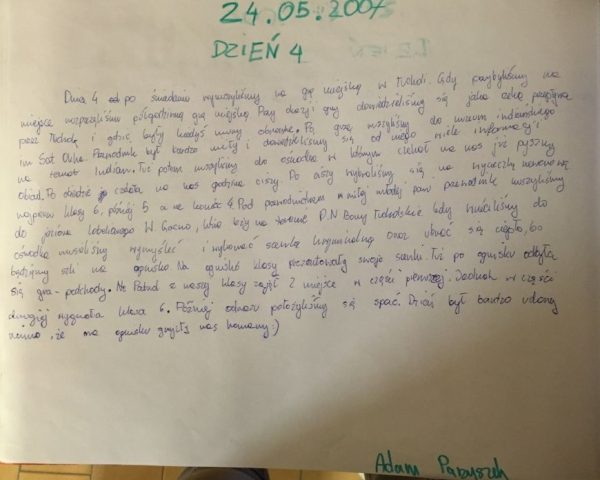 24.05.2007
DZIEŃ 4
Dnia 4 od po śniadaniu wyruszyliśmy na grę miejską w Tucholi. Gdy przybyliśmy na
miejsce rozpoczęliśmy półgodzinną grę miejską Przy okazji gry dowiedzieliśmy się jaka rzeka przepływa
przez Tucholę i gdzie były kiedyś mury obronne. Po grze ruszyliśmy do muzeum indiańskiego
im Sat Okha. Przewodnik był bardzo miły i dowiedzieliśmy się od niego wiele informacji
na temat Indian. Tuż potem ruszyliśmy do ośrodka w którym czekał na nas już pyszny
obiad. Po obiedzie czekała na nas godzina ciszy. Po ciszy wybraliśmy się na wycieczkę rowerową
najpierw klasy 6, później 5 a na koniec 4. Pod przewodnictwem miłej młodej pani przewodnik ruszyliśmy
do jeziora lobeliowego W Gacno, które leży na terenie P.N Bory Tucholskie Gdy wróciliśmy do
ośrodka musieliśmy wymyśleć i wykonać scenkę kryminalną oraz ubrać się ciepło, bo
będziemy szli na ognisko Na ognisku klasy prezentowały swoje scenki. Tuż po ognisku odbyła
się gra - podchody. Na Patrol z naszej klasy zajął 2 miejsce w części pierwszej. Jednak w części
drugiej wygrała klasa 6. Później odrazu położyliśmy się spać. Dzień był bardzo udany
mimo, że na ognisku gryzły nas komary :)
Adam